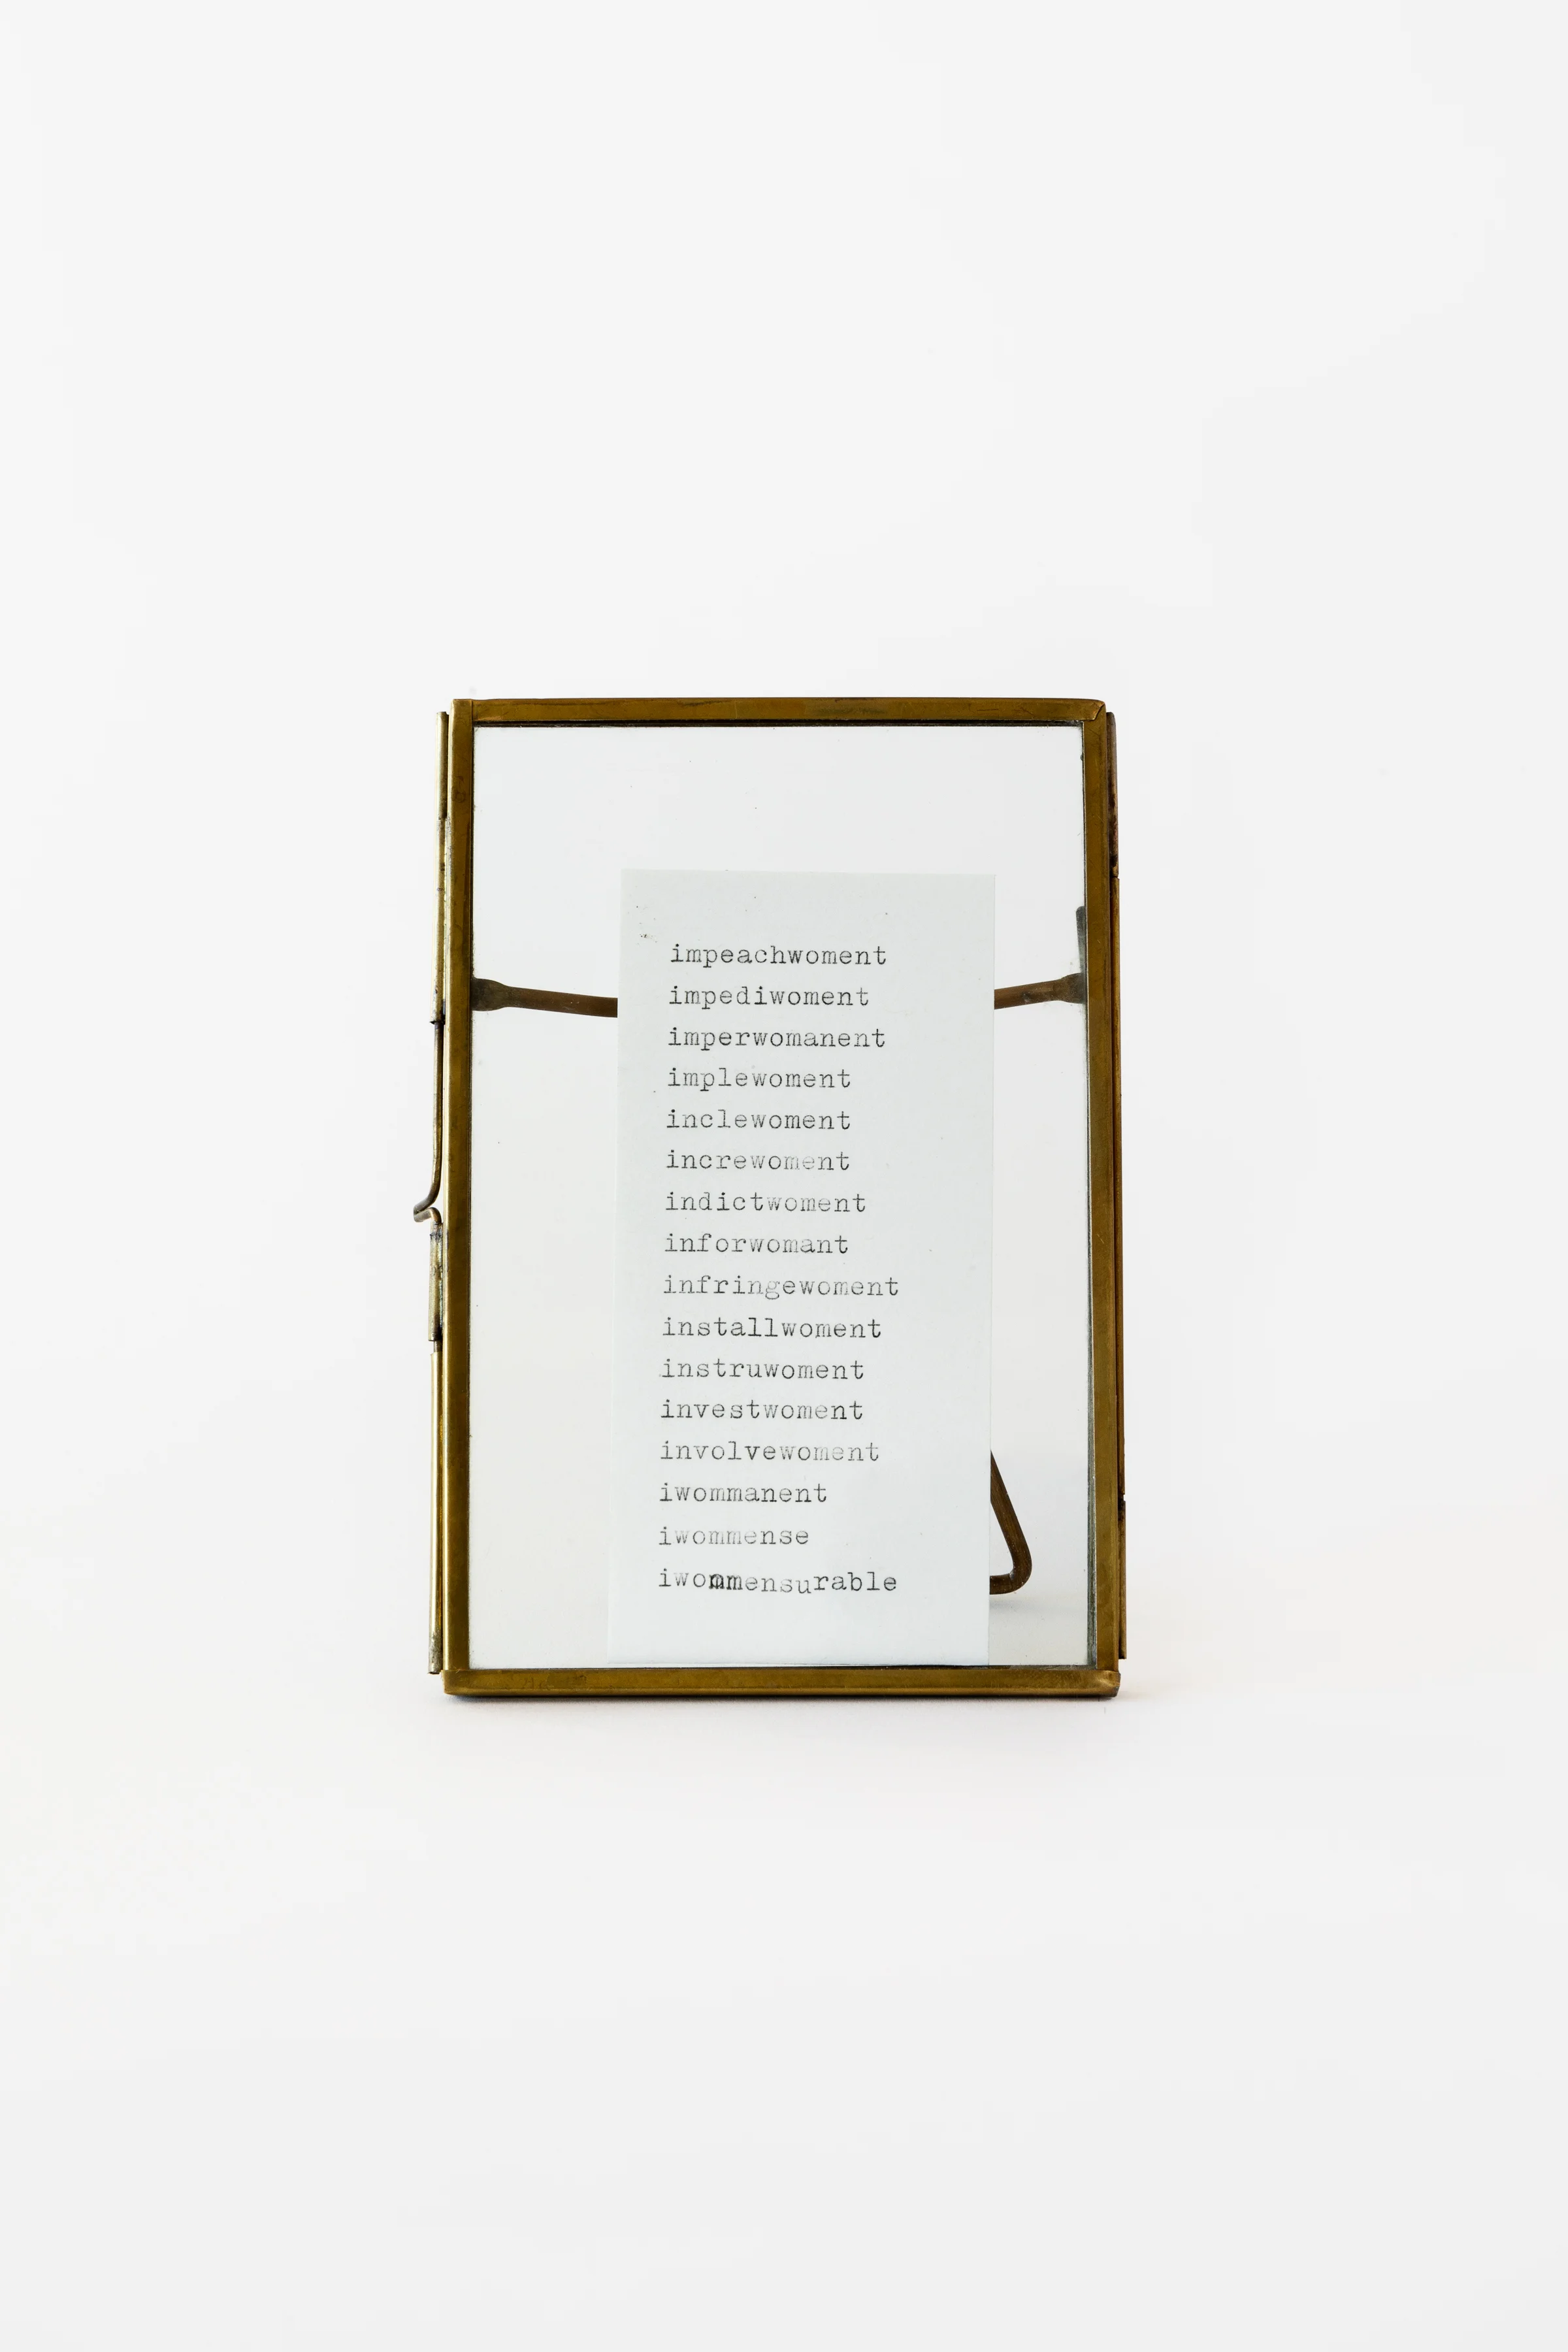 impeachwoment
impediwoment
imperwomanent
implewoment
inclewoment
increwoment
indictwoment
inforwomant
infringewoment
installwoment
instruwoment
investwoment
involvewoment
iwommanent
iwommense
iwommensurable